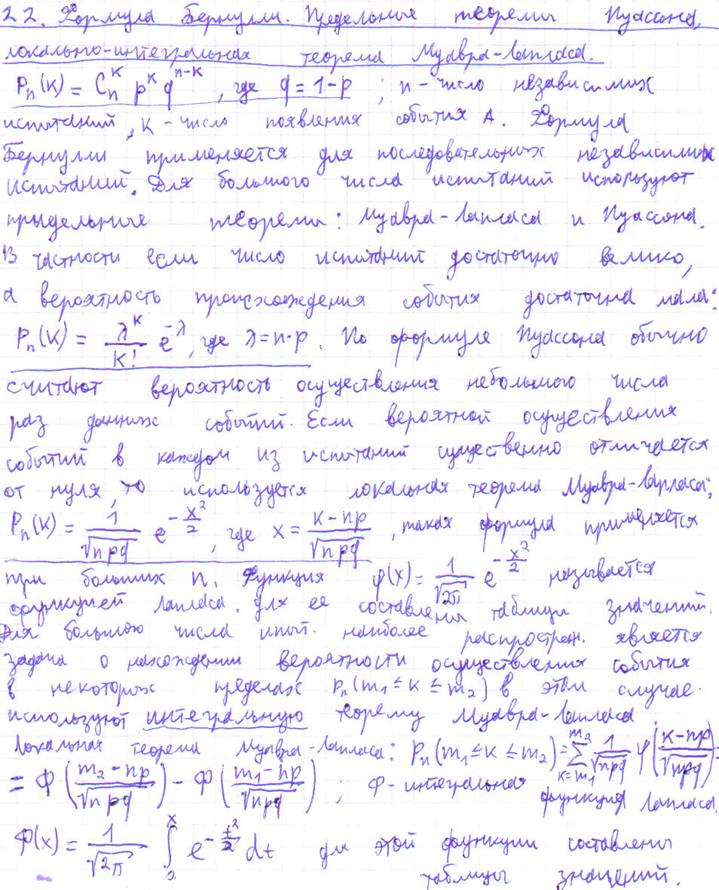 22. Формула Бернулли. Предельные теоремы Пуассона,
локально-интегральная теорема Муавра-Лапласа.
Pₙ(k) = Cₙᵏ pᵏ qⁿ⁻ᵏ, где q = 1-p ; n - число независимых
испытаний, k - число появления события A. Формула
Бернулли применяется для последовательных независимых
испытаний. Для большого числа испытаний используют
придельные теоремы: Муавра-Лапласа и Пуассона.
В частности если число испытаний достаточно велико,
а вероятность происхождения события достаточна мала:
Pₙ(k) = λᵏ/k! e^(-λ), где λ=n·p. По формуле Пуассона обычно
считают вероятность осуществления небольшого числа
раз данных событий. Если вероятной осуществления
событий в каждом из испытаний существенно отличается
от нуля, то используется локальная теорема Муавра-Лапласа:
Pₙ(k) = 1/√(npq) e^(-x²/2), где x = (k-np)/√(npq), такая формула применяется
при больших n. Функция φ(x) = 1/√(2π) e^(-x²/2) называется
функцией Лапласа. Для ее составлены таблицы значений.
Для большого числа испыт. наиболее распростран. является
задача о нахождении вероятности осуществления события
в некоторых пределах Pₙ(m₁ ≤ k ≤ m₂) в этом случае
используют интегральную теорему Муавра-Лапласа
Локальная теорема Муавра-Лапласа: Pₙ(m₁ ≤ k ≤ m₂) = ∑_(k=m₁)^(m₂) 1/√(npq) φ((k-np)/√(npq)) =
= Ф((m₂-np)/√(npq)) - Ф((m₁-np)/√(npq)) ; Ф - интегральная функция Лапласа.
Ф(x) = 1/√(2π) ∫₀ˣ e^(-t²/2) dt для этой функции составлены
таблицы значений.